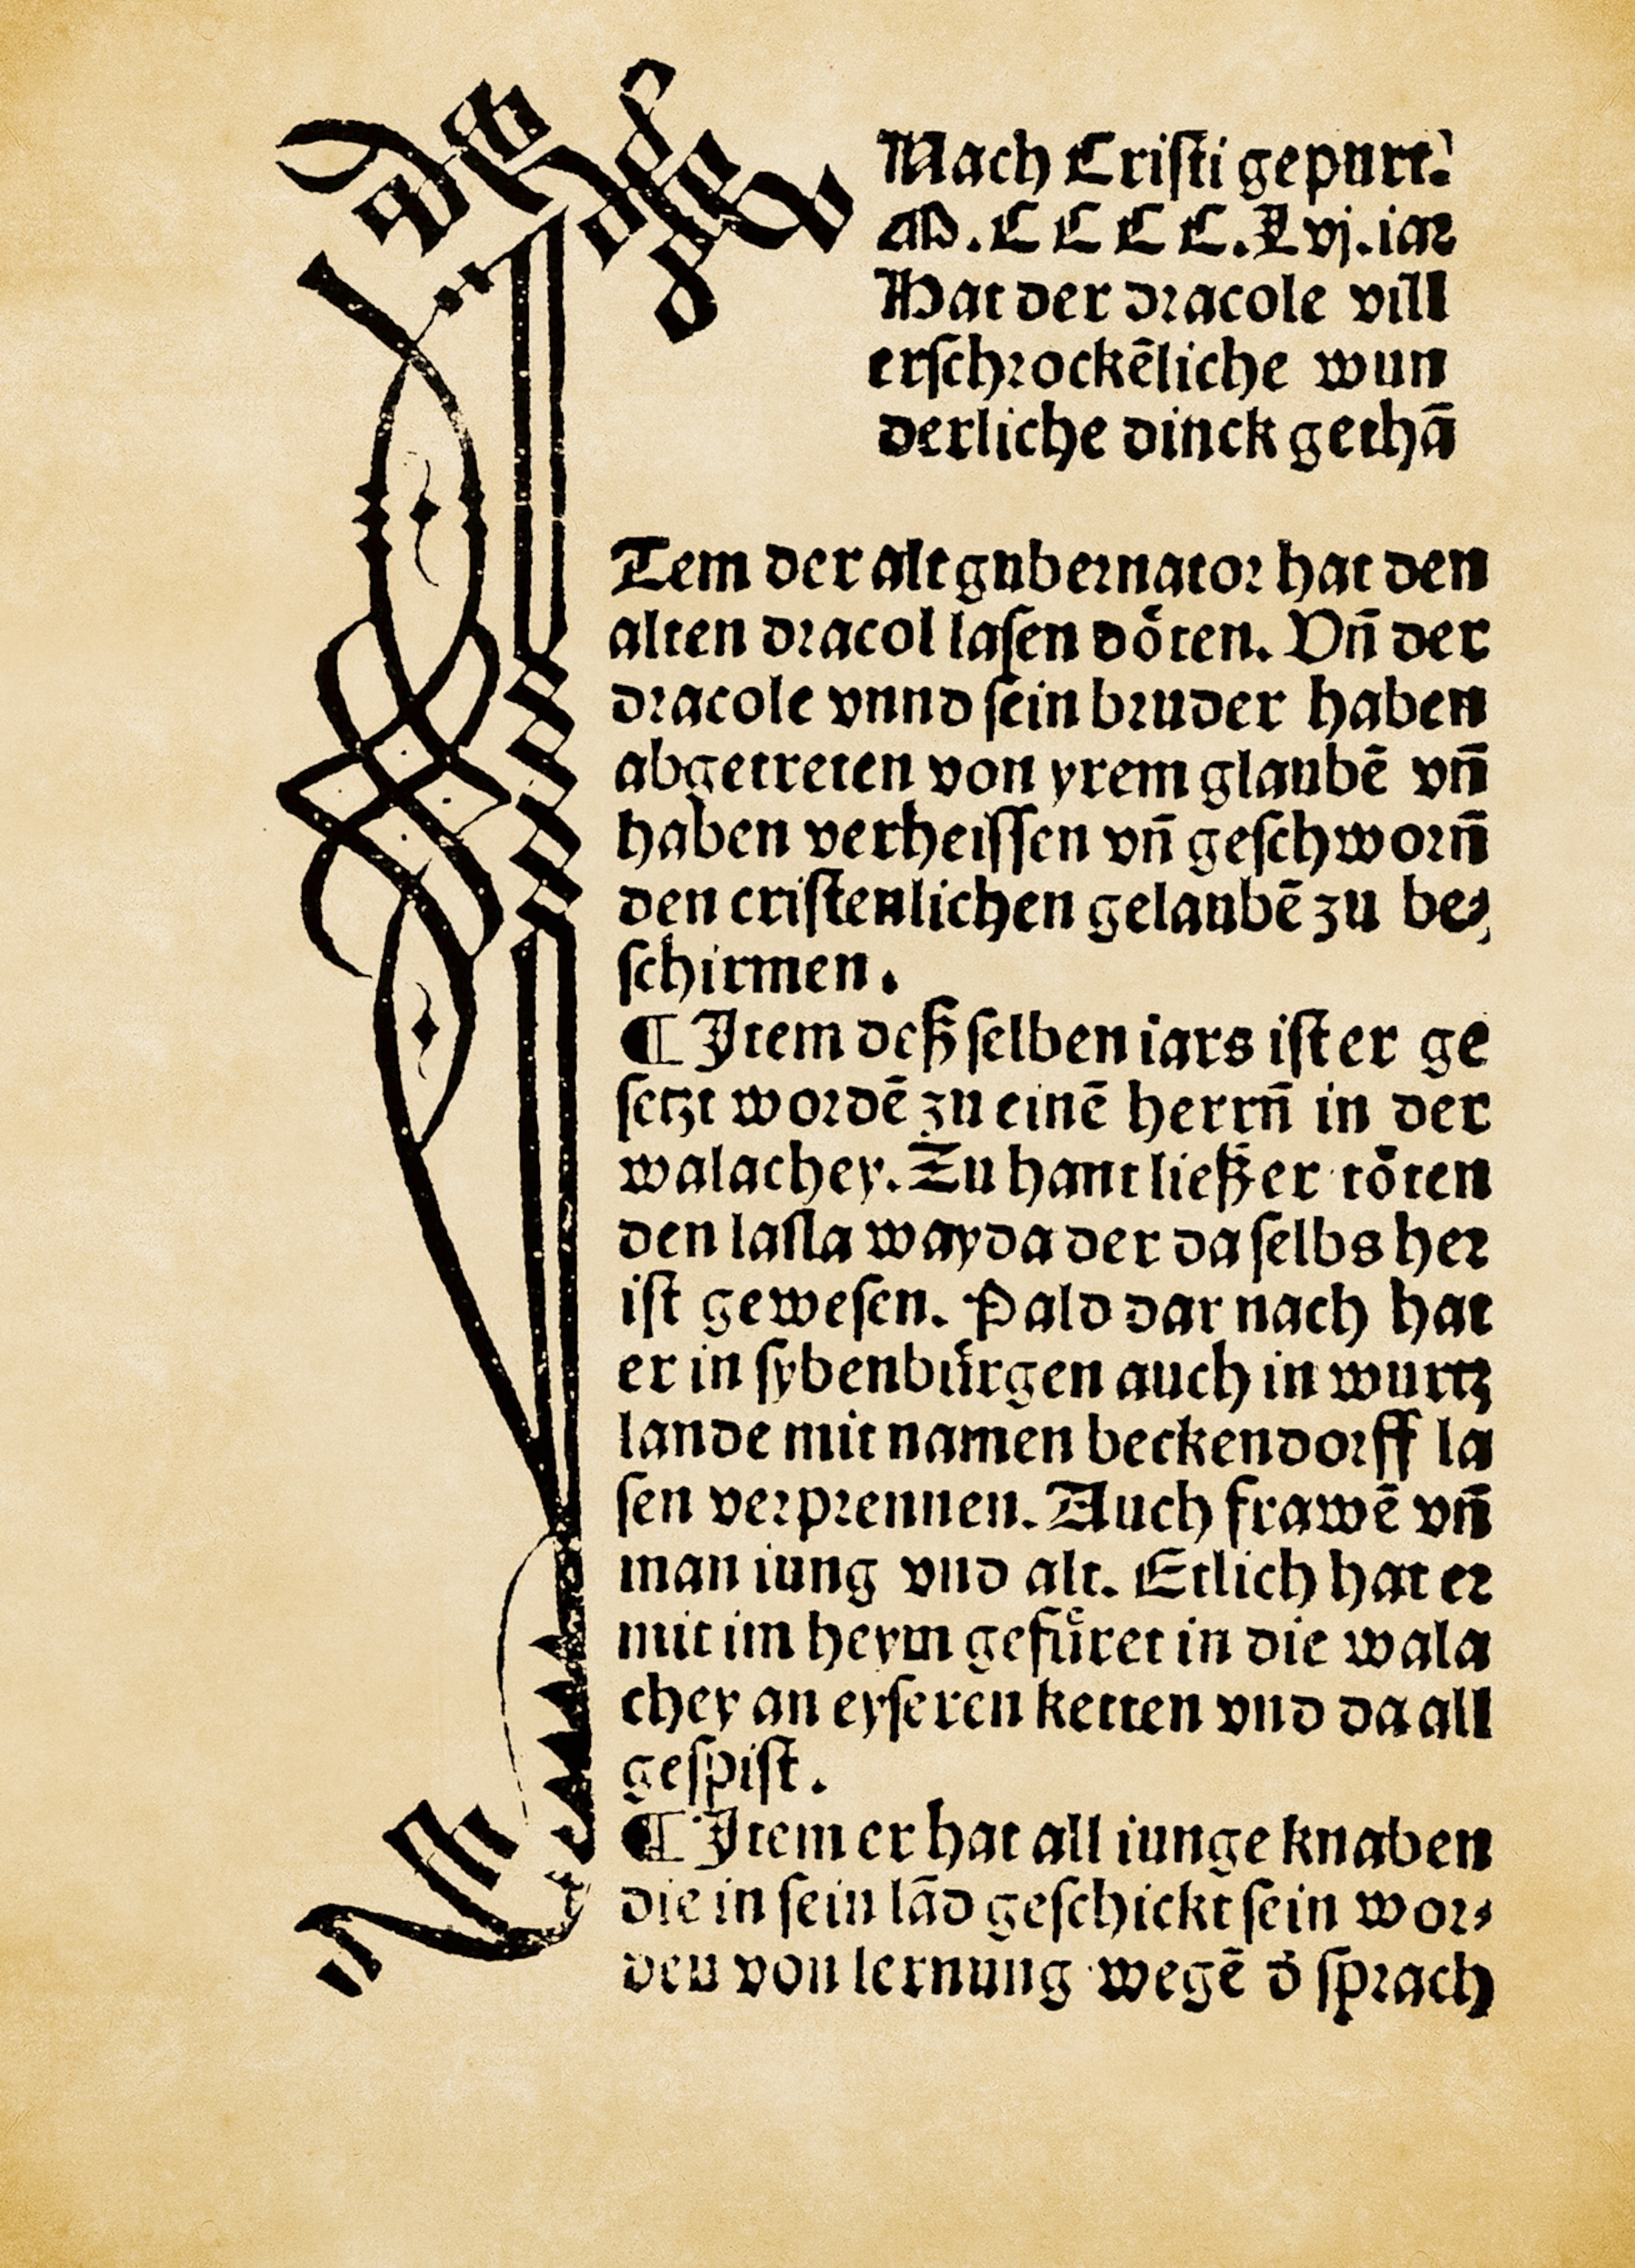 Nach Criſti gepurt.
M.CCCC.Lvj.iar
Hat der dracole vill
erſchrockēliche wun
derliche dinck gethā
Tem der alt gubernator hat den
alten dracol laſen döten. Vn̄ der
dracole vnnd ſein bruder haben
abgetreten von yrem glaubē vn̄
haben verheiſſen vn̄ geſchworn̄
den criſtenlichen gelaubē zu be⸗
ſchirmen.
¶ Item deß ſelben iars iſt er ge
ſetzt wordē zu einē herrn̄ in der
walachey. Zu hant ließ er töten
den laſla wayda der da ſelbs her
iſt geweſen. Pald dar nach hat
er in ſybenbürgen auch in wurtz
lande mit namen beckendorff la
ſen verprennen. Auch frawē vn̄
man iung vnd alt. Etlich hat er
mit im heym gefüret in die wala
chey an eyſeren ketten vnd da all
geſpiſt.
¶ Item er hat all iunge knaben
die in ſein lād geſchickt ſein wor⸗
den von lernung wegē d̄ ſprach